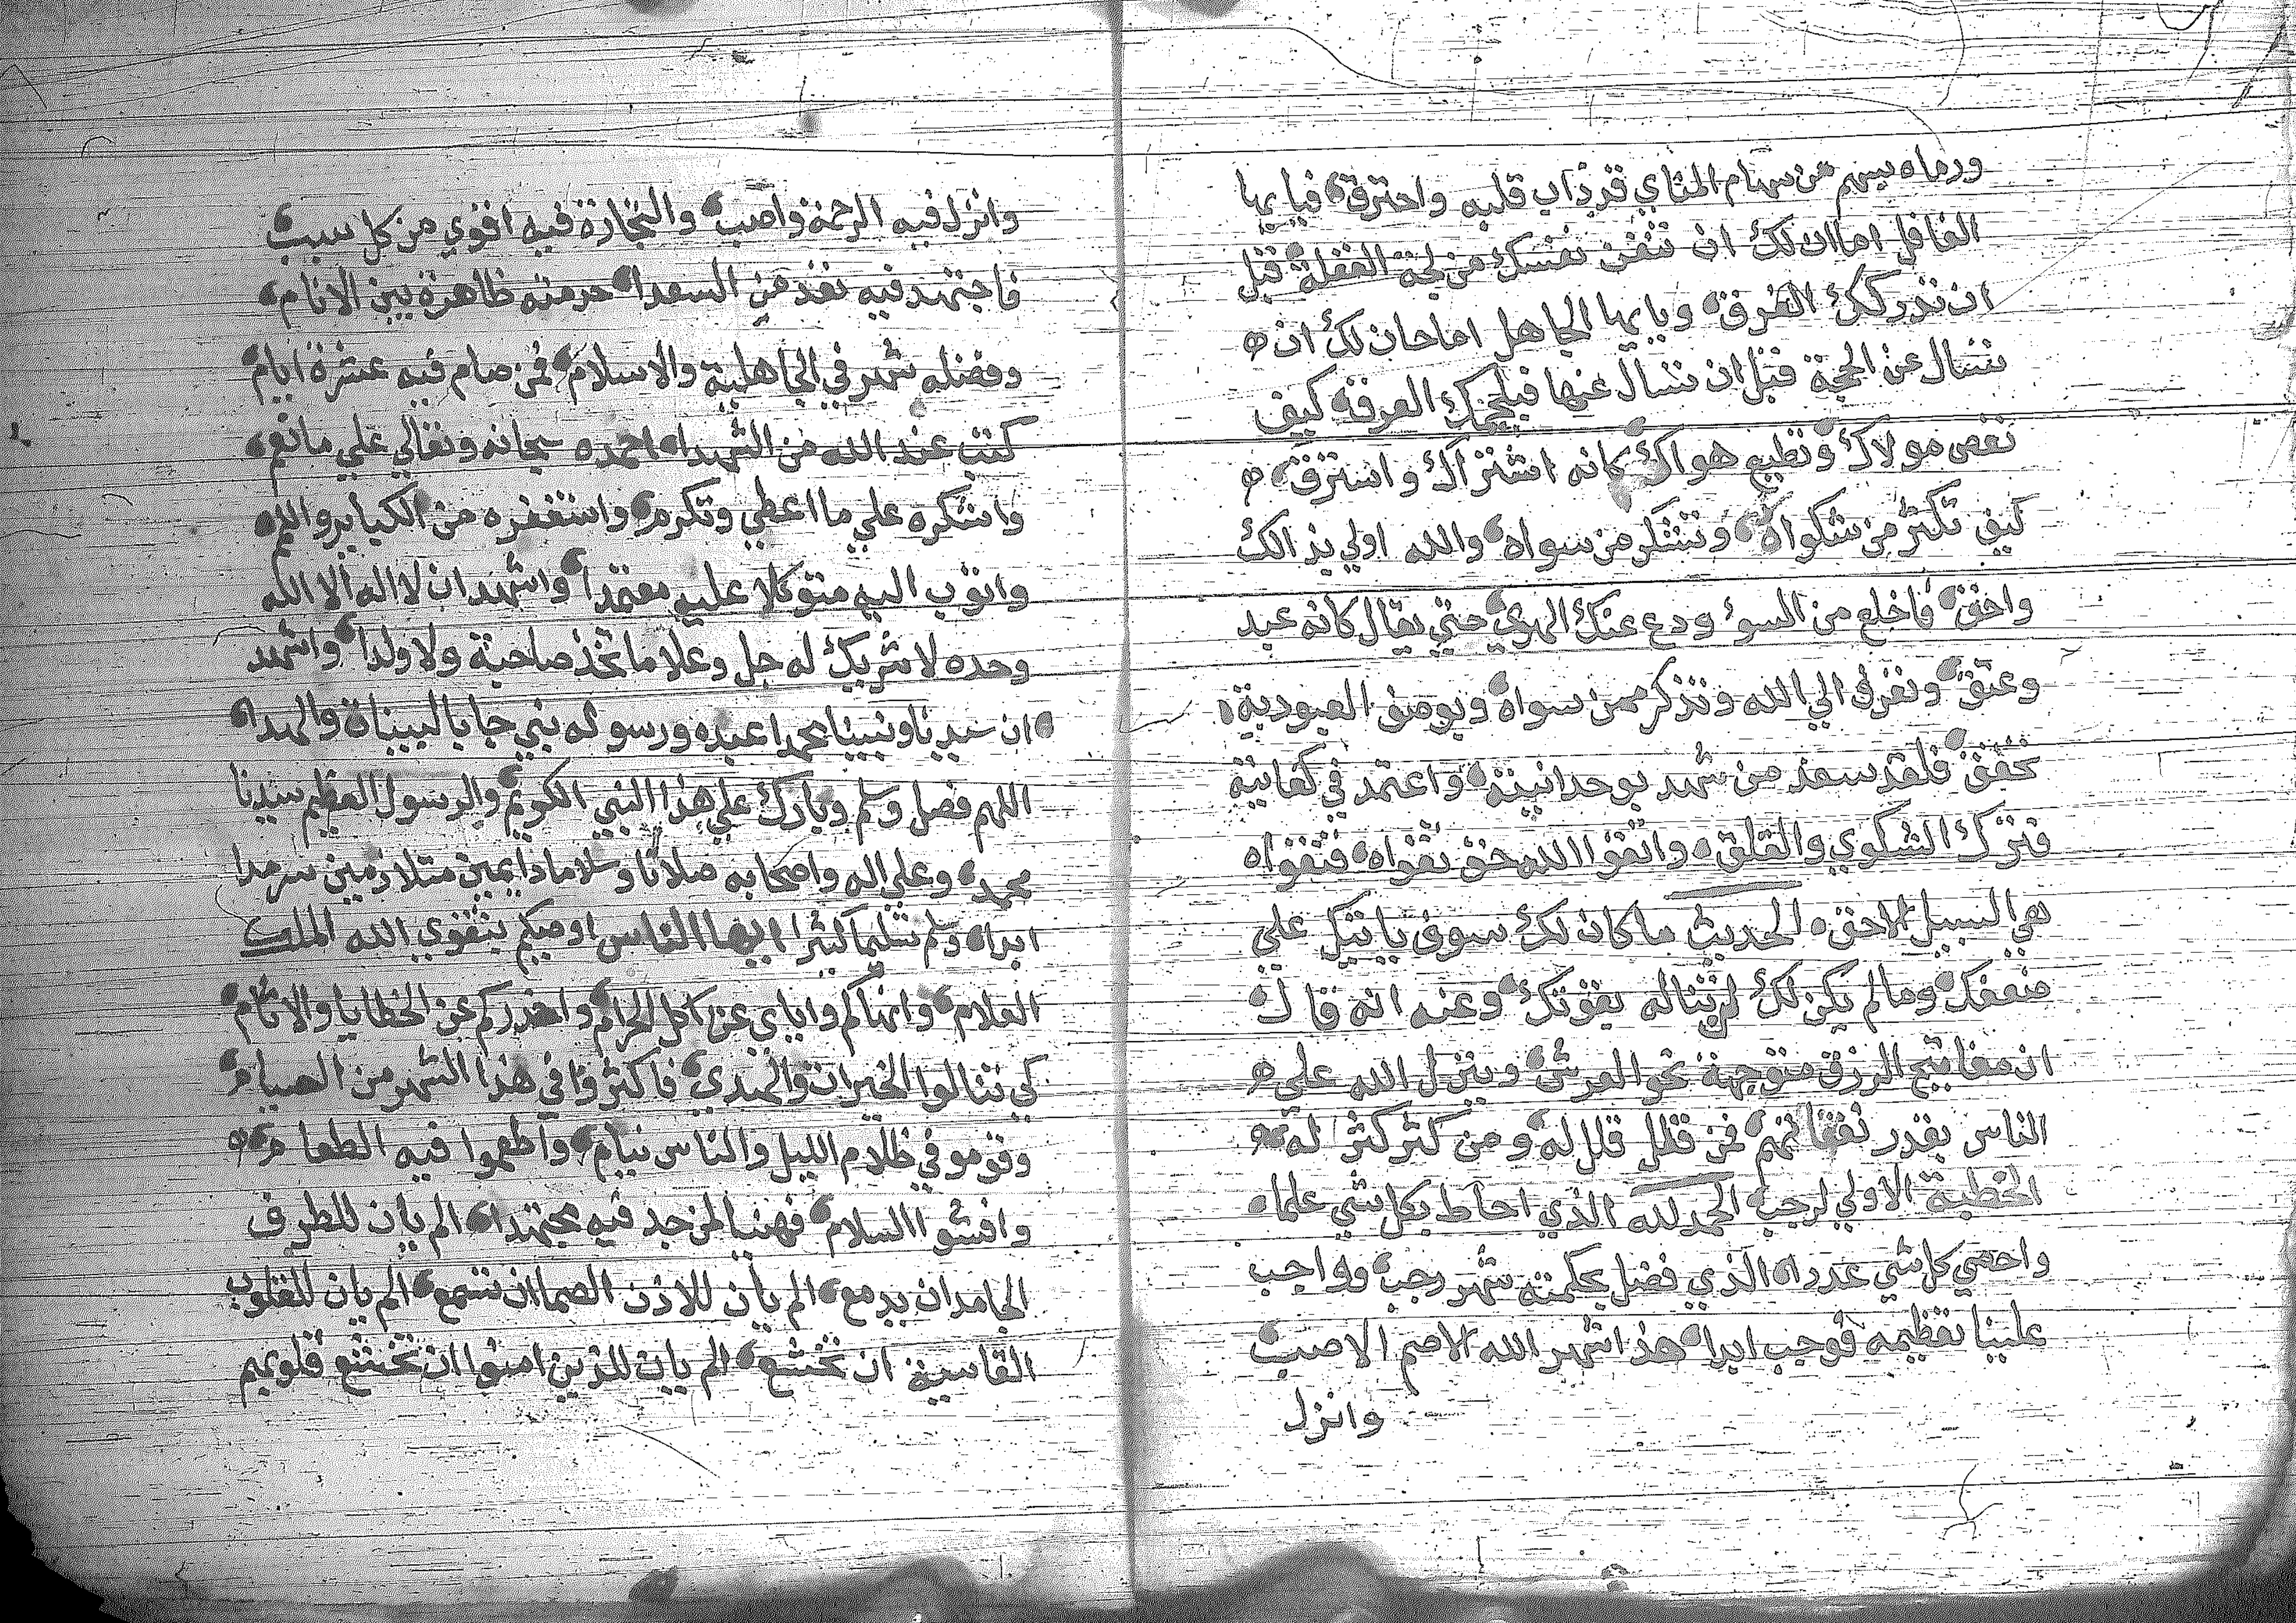 ورماه بسهم من سهام المناي قد ذاب قلبه واحترق فيايها
الغافل اماان لك ان تنقذ نفسك من لجة الغفلة قبل
ان تدركك الغرق ويايها الجاهل اماحان لك ان
تسال عن الحجة قبل ان تسال عنها فيلجمك العرقة كيف
تعص مولاك وتطيع هواك كانه اشتراك واسترق
كيف تكثر من شكواه وتشتكر من سواه والله اولي بذالك
واحق فاخلع من السوء ودع عنك الهوي حتي يقال كانه عبد
وعتق وتفر في الي الله وتذكر ممن سواه وبوصف العبودية
تحقق فلقد سعد من شهد بوحدانيته واعتمد في كفايته
فترك الشكوي والقلق واتقوا الله حق تقواه فتقواه
هي السبيل الاحق الحديث ما كان لك سوف ياتيك علي
ضعفك ومالم يكن لك لن تناله بقوتك وعنه انه قال
ان مفاتيح الرزق متوجهة نحو العرش وينزل الله علي
الناس بقدر نفقاتهم فمن قلل قلل له ومن كثر كثر له
الخطبة الاولي لرجب الحمد لله الذي احاط بكل شي علما
واحصي كل شي عددا الذي فضل بحكمته شهر رجب وواجب
علينا تعظيمه فوجب ابدا هذا شهر الله الاصم الاصب
وانزل
وانزل فيه الرحمة واصب والتجارة فيه اقوي من كل سبب
فاجتهد فيه تعد من السعدا حرمته ظاهرة بين الانام
وفضله شهر في الجاهلية والاسلام فمن صام فيه عشرة ايام
كتب عند الله من الشهدا احمده سبحانه وتعالي علي مانعم
واشكره علي ما اعطي وتكرم واستغفره من الكبايرواللمم
واتوب اليه متوكلا عليه معتمدا واشهد ان لااله الا الله
وحده لا شريك له جل وعلا ما تخذ صاحبة ولا ولدا واشهد
ان سيدنا ونبينا محمدا عبده ورسوله نبي جا بالبيناة والهدا
اللهم فصل وسلم وبارك علي هذا النبي الكريم والرسول العظيم سيدنا
محمد وعلي اله واصحابه صلاتا وسلاما دايمين متلازمين سرمدا
ابدا وسلم تسليما كثيرا ايها الناس اوصيكم بتقوي الله الملك
العلام وانهاكم واياي عن اكل الحرام واحذركم عن الخطايا والاثام
كي تنالوا الخيرات والهدي فاكثروا في هذا الشهر من الصيام
وقومو في ظلام الليل والناس نيام واطعموا فيه الطعام
وافشوا السلام فهنيا لمن جد فيه مجتهدا الم يان للطرف
الجامدان يدمع الم يان للاذن الصماان تسمع الم يان للقلوب
القاسية ان تخشع الم يان للذين امنوا ان تخشع قلوبهم